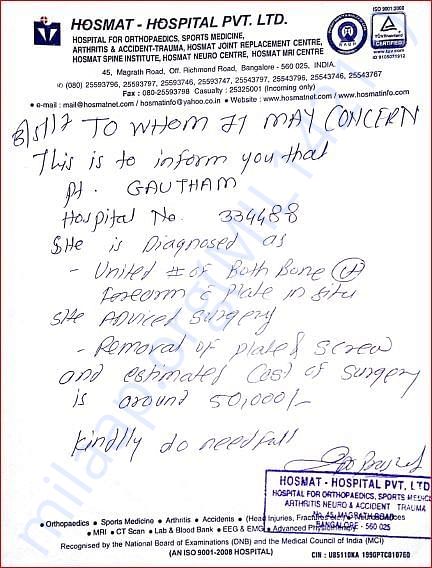 ISO 9001:2008
HOSMAT - HOSPITAL PVT. LTD.
HOSPITAL FOR ORTHOPAEDICS, SPORTS MEDICINE,
ARTHRITIS & ACCIDENT-TRAUMA, HOSMAT JOINT REPLACEMENT CENTRE,
HOSMAT SPINE INSTITUTE, HOSMAT NEURO CENTRE, HOSMAT MRI CENTRE
45, Magrath Road, Off. Richmond Road, Bangalore - 560 025, INDIA.
(080) 25593796, 25593797, 25593746, 25543747, 25543797, 25543796, 25543746, 25543767
Fax : 080-25593798 Casualty : 25325001 (Incoming only)
e-mail : mail@hosmatnet.com / hosmatinfo@yahoo.co.in • Website : www.hosmatnet.com / www.hosmatinfo.com
8/5/17 TO WHOM IT MAY CONCERN
This is to inform you that
pt. GAUTHAM
Hospital No. 334488
SHe is Diagnosed as
- United # of Both Bone
forearm c plate in situ
SHe Adviced surgery
- Removal of plate & screw
and estimates cost of surgery
is around 50,000/-
kindly do needfull
HOSMAT - HOSPITAL PVT. LTD
HOSPITAL FOR ORTHOPAEDICS, SPORTS MEDICINE
ARTHRITIS NEURO & ACCIDENT TRAUMA
No. 45, MAGRATH ROAD
BANGALORE - 560 025
• Orthopaedics • Sports Medicine • Arthritis • Accidents • (Head Injuries, Fractures etc.)
• MRI • CT Scan • Lab & Blood Bank • EEG & EMG • Advanced Physiotherapy
Recognised by the National Board of Examinations (DNB) and the Medical Council of India (MCI)
(AN ISO 9001-2008 HOSPITAL)
CIN : U85110KA1990PTC010760
milaap.org